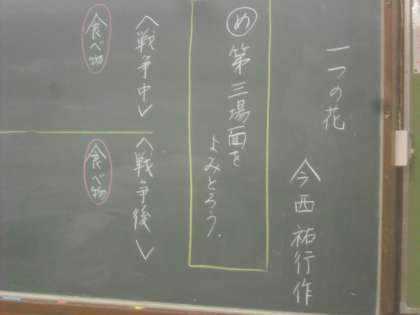 一つの花
今西祐行作
め 第三場面を
よみとろう。
〈戦争中〉
〈戦争後〉
食べ物
食べ物